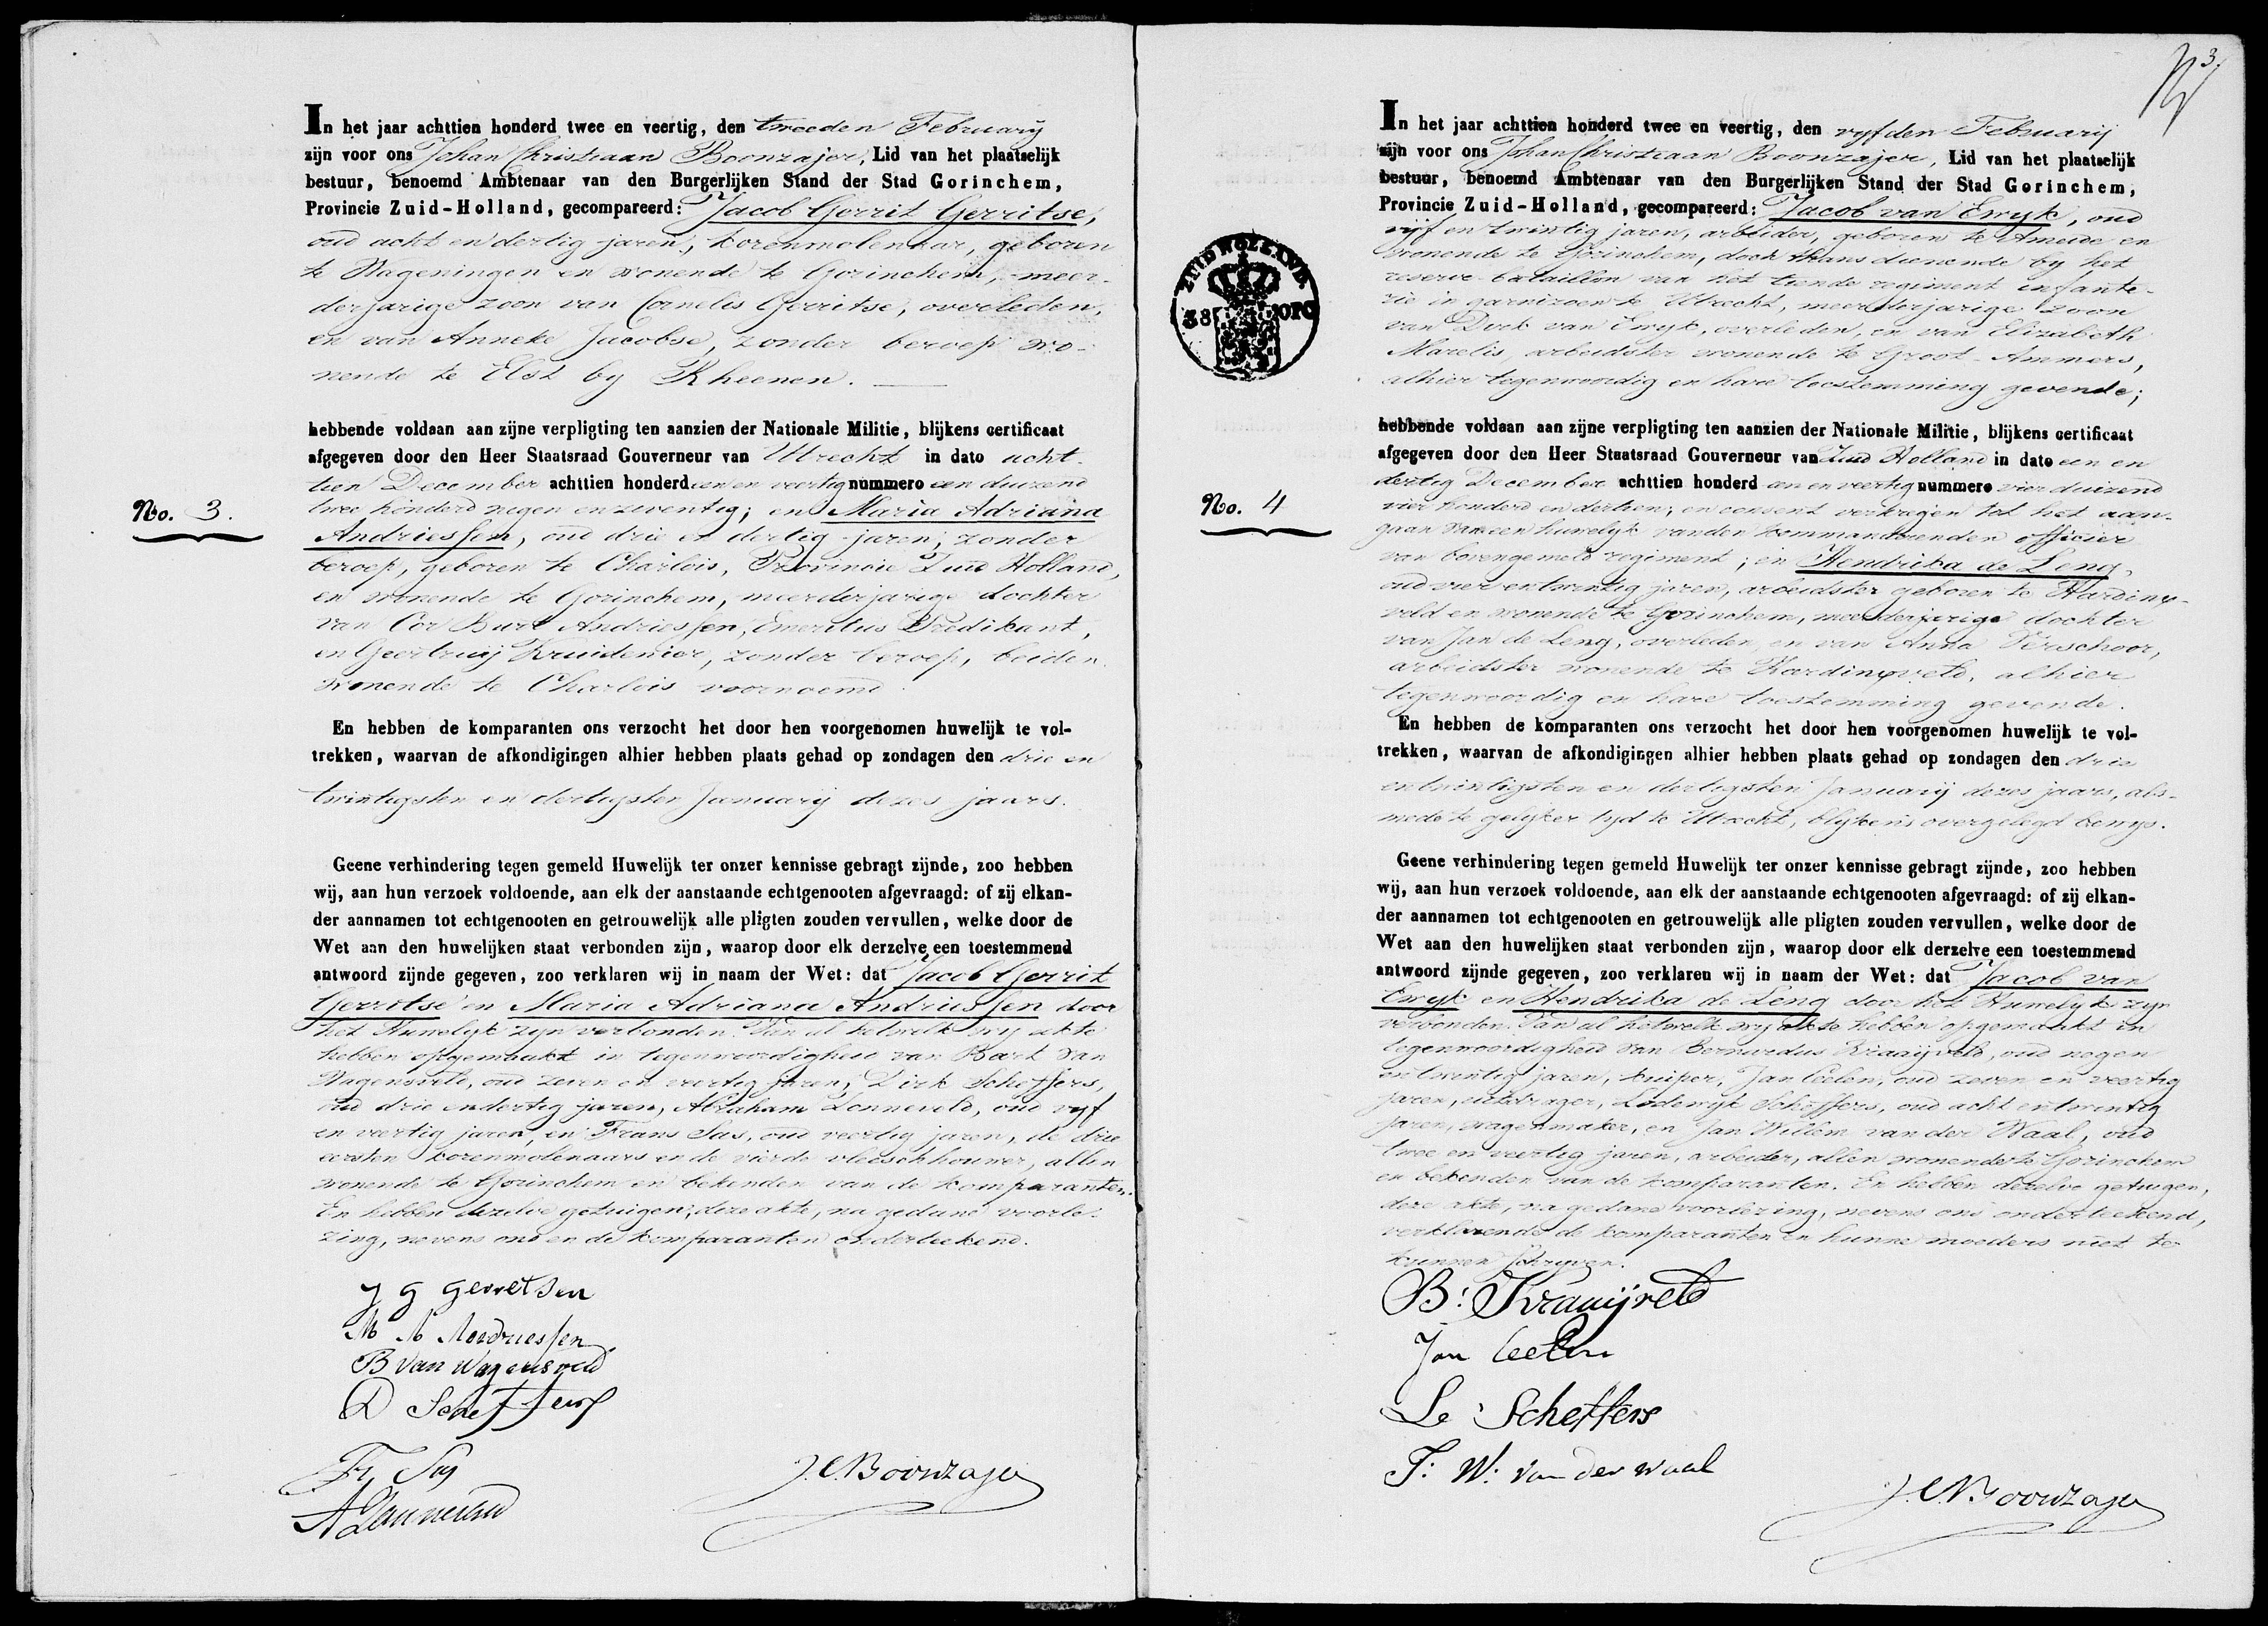 In het jaar achttien honderd twee en veertig, den tweeden February
zijn voor ons Johan Christiaan Boonzajer, Lid van het plaatselijk
bestuur, benoemd Ambtenaar van den Burgerlijken Stand der Stad Gorinchem,
Provincie Zuid-Holland, gecompareerd: Jacob Gerrit Gerritse,
oud acht en dertig jaren, korenmolenaar, geboren
te Wageningen en wonende te Gorinchem, meer-
derjarige zoon van Cornelis Gerritse, overleden,
en van Anneke Jacobse, zonder beroep wo-
nende te Elst by Rheenen.
hebbende voldaan aan zijne verpligting ten aanzien der Nationale Militie, blijkens certificaat
afgegeven door den Heer Staatsraad Gouverneur van Utrecht in dato acht-
tien December achttien honderd een en veertig nummero een duizend
No. 3.
twee honderd negen en zeventig; en Maria Adriana
Andriessen, oud drie en dertig jaren, zonder
beroep, geboren te Charlois, Provincie Zuid Holland,
en wonende te Gorinchem, meerderjarige dochter
van Cor Burt Andriessen, Emeritus Predikant,
en Geertruij Kruidenier, zonder beroep, beiden
wonende te Charlois voornoemd.
En hebben de komparanten ons verzocht het door hen voorgenomen huwelijk te vol-
trekken, waarvan de afkondigingen alhier hebben plaats gehad op zondagen den drie en
twintigsten en dertigsten January dezes jaars.
Geene verhindering tegen gemeld Huwelijk ter onzer kennisse gebragt zijnde, zoo hebben
wij, aan hun verzoek voldoende, aan elk der aanstaande echtgenooten afgevraagd: of zij elkan-
der aannamen tot echtgenooten en getrouwelijk alle pligten zouden vervullen, welke door de
Wet aan den huwelijken staat verbonden zijn, waarop door elk derzelve een toestemmend
antwoord zijnde gegeven, zoo verklaren wij in naam der Wet: dat Jacob Gerrit
Gerritse en Maria Adriana Andriessen door
het Huwelyk zyn verbonden. Van al hetwelk wy akte
hebben opgemaakt in tegenwoordigheid van Bart van
Wagensveld, oud zeven en veertig jaren, Dirk Scheffers,
oud drie en dertig jaren, Abraham Lenneveld, oud vyf
en veertig jaren, en Frans Sas, oud veertig jaren, de drie
eersten korenmolenaars en de vierde vleeschhouwer, allen
wonende te Gorinchem en bekenden van de komparanten.
En hebben dezelve getuigen, deze akte, na gedane voorle-
zing, nevens ons en de komparanten onderteekend.
J G Gerretsen
M A Andriessen
B van Wagensveld
D Scheffers
Fr Sas
J. C. Boonzajer
3.
In het jaar achttien honderd twee en veertig, den vyfden February
zijn voor ons Johan Christiaan Boonzajer, Lid van het plaatselijk
bestuur, benoemd Ambtenaar van den Burgerlijken Stand der Stad Gorinchem,
Provincie Zuid-Holland, gecompareerd: Jacob van Erwyk, oud
vijf en twintig jaren, arbeider, geboren te Ameide en
wonende te Gorinchem, doch thans dienende by het
reserve-bataillon van het tiende regiment infante-
rie in garnizoen te Utrecht, meerderjarige zoon
van Dirk van Erwyk, overleden, en van Elizabeth
Marelis, arbeidster wonende te Groot-Ammers,
alhier tegenwoordig en hare toestemming gevende;
ZUID HOLLAND
hebbende voldaan aan zijne verpligting ten aanzien der Nationale Militie, blijkens certificaat
afgegeven door den Heer Staatsraad Gouverneur van Zuid Holland in dato een en
dertig December achttien honderd een en veertig nummero vier duizend
No. 4
vier honderd en dertien; en consent verkregen tot het aan-
gaan van een huwelyk van den kommanderenden officier
van bovengemeld regiment; en Hendrika de Leng,
oud vier en twintig jaren, arbeidster geboren te Hardinx-
veld en wonende te Gorinchem, meerderjarige dochter
van Jan de Leng, overleden, en van Anna Verschoor,
arbeidster wonende te Hardinxveld, alhier
tegenwoordig en hare toestemming gevende.
En hebben de komparanten ons verzocht het door hen voorgenomen huwelijk te vol-
trekken, waarvan de afkondigingen alhier hebben plaats gehad op zondagen den drie
en twintigsten en dertigsten January dezes jaars, als-
mede te gelyker tyd te Utrecht, blykens overgelegd bewys.
Geene verhindering tegen gemeld Huwelijk ter onzer kennisse gebragt zijnde, zoo hebben
wij, aan hun verzoek voldoende, aan elk der aanstaande echtgenooten afgevraagd: of zij elkan-
der aannamen tot echtgenooten en getrouwelijk alle pligten zouden vervullen, welke door de
Wet aan den huwelijken staat verbonden zijn, waarop door elk derzelve een toestemmend
antwoord zijnde gegeven, zoo verklaren wij in naam der Wet: dat Jacob van
Erwyk en Hendrika de Leng door het Huwelyk zyn
verbonden. Van al hetwelk wy akte hebben opgemaakt in
tegenwoordigheid van Bernardus Kraaijveld, oud negen
en twintig jaren, kuiper, Jan Ceelen, oud zeven en veertig
jaren, uitdrager, Lodewyk Scheffers, oud acht en twintig
jaren, wagenmaker, en Jan Willem van der Waal, oud
twee en veertig jaren, arbeider, allen wonende te Gorinchem
en bekenden van de komparanten. En hebben dezelve getuigen,
deze akte, na gedane voorlezing, nevens ons onderteekend,
verklarende de komparanten en hunne moeders niet te
kunnen schryven.
B: Kraaijveld
Jan Ceelen
Le Scheffers
J: W: van der Waal
J. C. Boonzajer